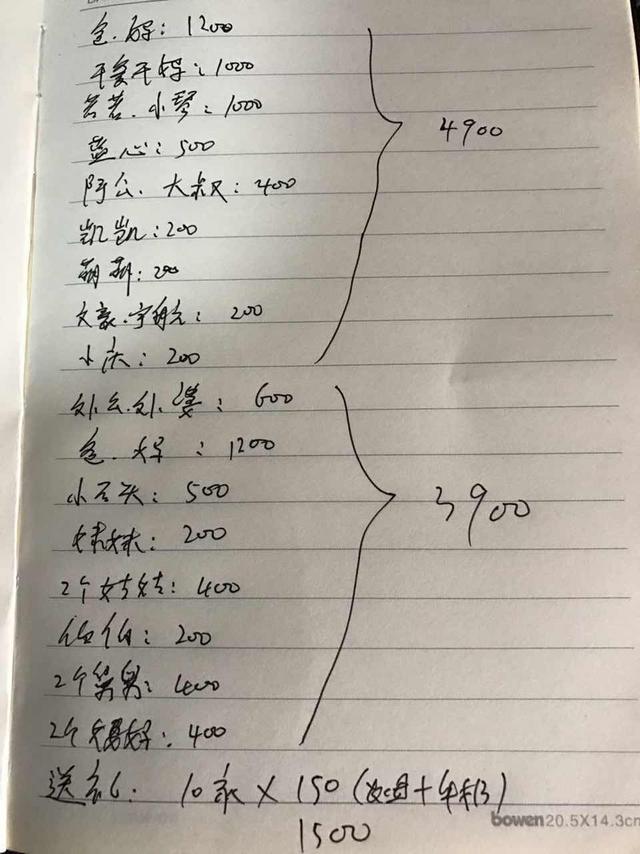 爸.妈：1200
干爹干妈：1000
苕苕.小琴：1000
蓝心：500
4900
阿公.大叔：400
凯凯：200
萌萌：200
文豪.宇航：200
小庆：200
外公.外婆：600
爸.妈：1200
小石头：500
3900
妹妹：200
2个姑姑：400
伯伯：200
2个舅舅：400
2个舅妈：400
送礼：10家×150(+年糕)
1500
bowen20.5X14.3cm